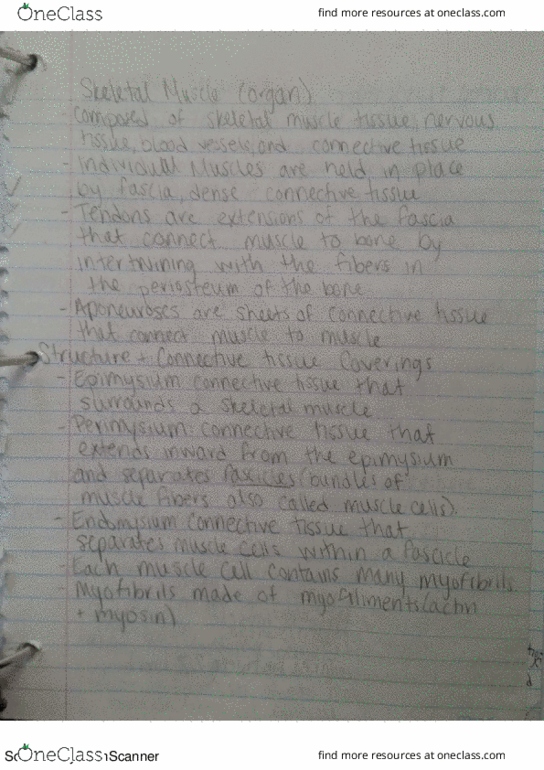 OneClass find more resources at oneclass.com
Skeletal Muscle (organ)
- composed of skeletal muscle tissue, nervous
tissue, blood vessels, and connective tissue
- Individual Muscles are held in place
by fascia, dense connective tissue
- Tendons are extensions of the fascia
that connect muscle to bone by
intertwining with the fibers in
the periosteum of the bone
- Aponeuroses are sheets of connective tissue
that connect muscle to muscle
Structure + Connective tissue Coverings
- Epimysium connective tissue that
surrounds a skeletal muscle
- Perimysium: connective tissue that
extends inward from the epimysium
and separates fasicles (bundles of
muscle fibers also called muscle cells).
- Endomysium connective tissue that
separates muscle cells within a fascicle
- Each muscle cell contains many myofibrils
- Myofibrils made of myofiliments (actin
+ myosin)
OneClass Scanner find more resources at oneclass.com